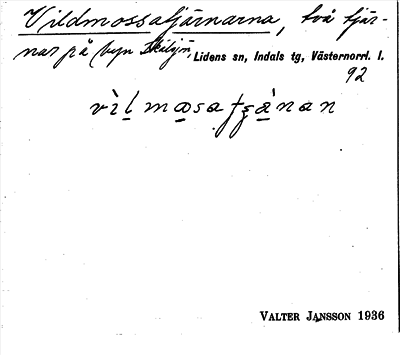 Vildmossatjärnarna, två tjär-
nar på byn Skiljn, Lidens sn, Indals tg, Västernorrl. l.
92
vìl mɑsa tʂä̀nan
VALTER JANSSON 1936